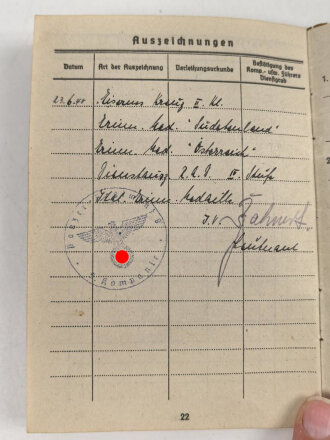 Auszeichnungen
Datum Art der Auszeichnung Verleihungsurkunde Bestätigung des Komp.- usw. Führers Dienstgrad
23.6.40 Eisernes Kreuz II. Kl.
Erinn. Med. "Sudetenland"
Erinn. Med. "Österreich"
Dienstausz. IV. Stufe
Ital. Erinn. Medaille
I.V.
Leutnant
Kompanie
22
1.
2